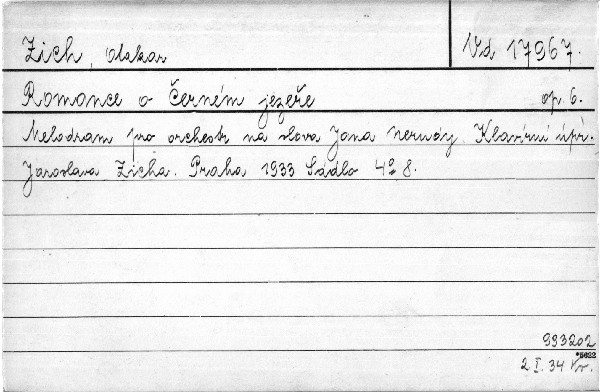 Zich, Otakar
Vd 17967.
Romance o Černém jezeře op. 6.
Melodram pro orchestr na slova Jana Nerudy. Klavírní úpr.
Jaroslava Zicha. Praha 1933 Sádlo 4º 8.
993202
*5682
2 I. 34 Vr.